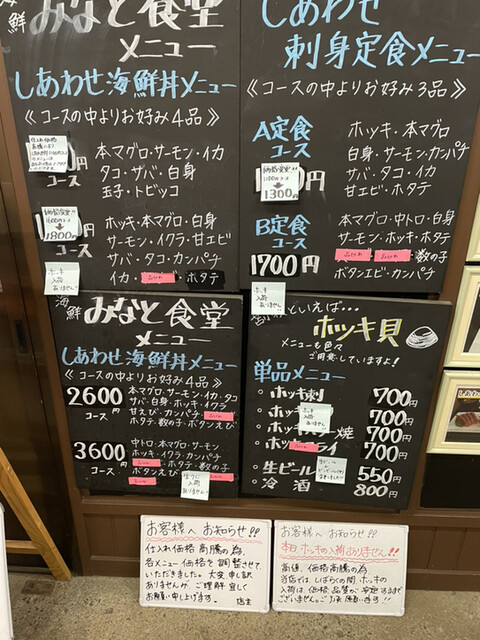 海鮮
みなと食堂
メニュー
しあわせ海鮮丼メニュー
《コースの中よりお好み4品》
円
コース
本マグロ・サーモン・イカ
タコ・サバ・白身
玉子・トビッコ
価格変更!!
1800円
コース
ホッキ・本マグロ・白身
サーモン・イクラ・甘エビ
サバ・タコ・カンパチ
イカ・
・ホタテ
ホッキ
入荷
ありません!!
しあわせ
刺身定食メニュー
《コースの中よりお好み3品》
A定食
コース
価格変更!!
1300円
ホッキ・本マグロ
白身・サーモン・カンパチ
サバ・タコ・イカ
甘エビ・ホタテ
B定食
コース
1700円
本マグロ・中トロ・白身
サーモン・ホッキ・ホタテ
・数の子
ボタンエビ・カンパチ
ホッキ
入荷
ありません!!
海鮮
みなと食堂
メニュー
しあわせ海鮮丼メニュー
《コースの中よりお好み4品》
2600円
コース
本マグロ・サーモン・イカ・タコ
サバ・白身・ホッキ・イクラ
甘えび・カンパチ
ホタテ・数の子・ボタンえび
3600円
コース
中トロ・本マグロ・サーモン
イクラ・ホッキ・カンパチ
・ホタテ・数の子
ボタンえび
生うに
入荷
ありません!!
といえば…
ホッキ貝
メニューも色々
ご用意していますよ!
単品メニュー
・ホッキ刺 700円
700円
焼 700円
・ホッキフライ 700円
ホッキ
入荷
ありません!!
・生ビール 550円
・冷酒 800円
お客様へお知らせ!!
仕入れ価格高騰の為、
各メニュー価格を調整させて
いただきました。大変申し訳
ありませんが、ご理解宜しく
お願い申し上げます。 店主
お客様へお知らせ!!
本日ホッキの入荷ありません!!
高値、価格高騰の為
当店では、しばらくの間、ホッキの
入荷は、価格、品質が安定するまで
ございません。ご了承願います!!